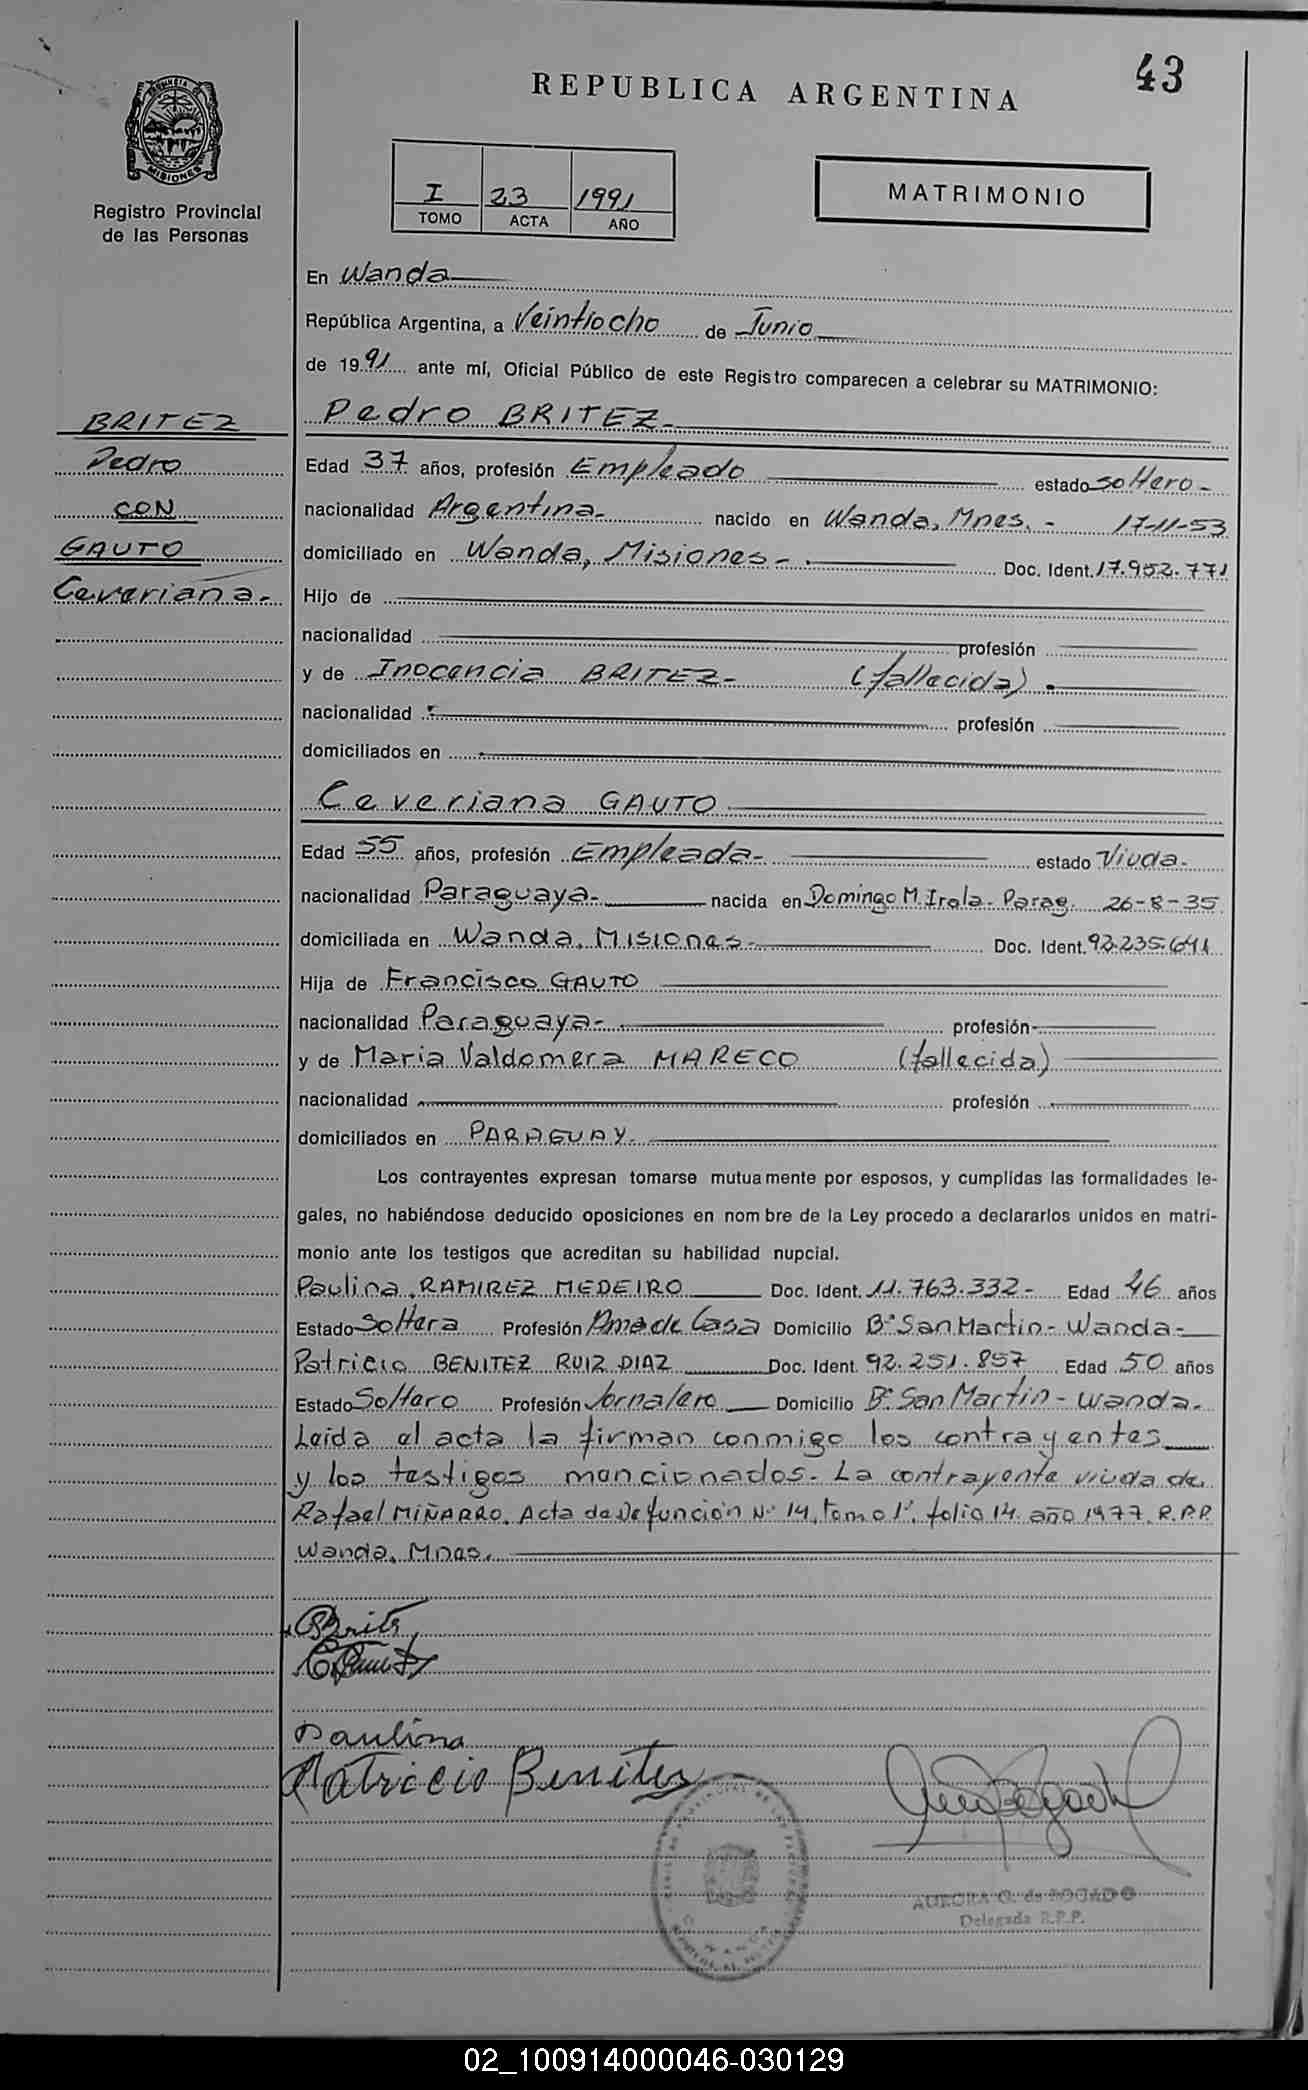 43
REPUBLICA ARGENTINA
MISIONES
Registro Provincial
de las Personas
I 23 1991
TOMO ACTA AÑO
MATRIMONIO
En Wanda
República Argentina, a Veintiocho de Junio
de 1991 ante mí, Oficial Público de este Registro comparecen a celebrar su MATRIMONIO:
BRITEZ
Pedro
CON
GAUTO
Ceveriana.-
Pedro BRITEZ.-
Edad 37 años, profesión Empleado estado soltero.-
nacionalidad Argentina.- nacido en Wanda, Mnes.- 17-11-53
domiciliado en Wanda, Misiones.- Doc. Ident. 17.952.771
Hijo de
nacionalidad profesión
y de Inocencia BRITEZ.- (fallecida).
nacionalidad profesión
domiciliados en
Ceveriana GAUTO
Edad 55 años, profesión Empleada.- estado Viuda.-
nacionalidad Paraguaya.- nacida en Domingo M. Irala- Parag. 26-8-35
domiciliada en Wanda, Misiones.- Doc. Ident. 92.235.641
Hija de Francisco GAUTO
nacionalidad Paraguaya.- profesión
y de Maria Valdomera MARECO (fallecida)
nacionalidad profesión
domiciliados en PARAGUAY.
Los contrayentes expresan tomarse mutuamente por esposos, y cumplidas las formalidades le-
gales, no habiéndose deducido oposiciones en nombre de la Ley procedo a declararlos unidos en matri-
monio ante los testigos que acreditan su habilidad nupcial.
Paulina RAMIREZ MEDEIRO Doc. Ident. 11.763.332.- Edad 46 años
Estado Soltera Profesión Ama de Casa Domicilio Bº San Martin- Wanda-
Patricio BENITEZ RUIZ DIAZ Doc. Ident. 92.251.857 Edad 50 años
Estado Soltero Profesión Jornalero Domicilio Bº San Martin- Wanda.
Leida el acta la firman conmigo los contrayentes
y los testigos mencionados. La contrayente viuda de
Rafael MIÑARRO. Acta de Defunción Nº 14, tomo 1º, folio 14. año 1977. R.P.P.
Wanda, Mnes.
Paulina
Patricio Benites
AURORA G. de BOGADO
Delegada R.P.P.
02_100914000046-030129